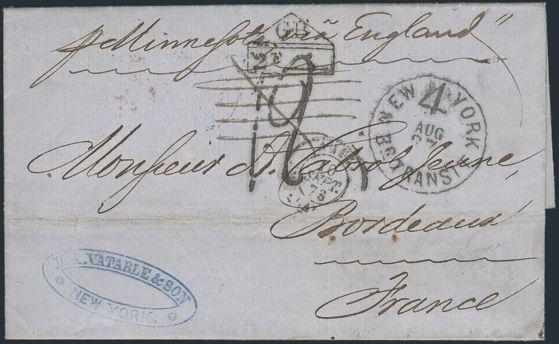 pr Minnesota via England"
GB
2F
NEW YORK
4
AUG
BR TRANSIT
12
SEPT.
Monsieur
Jeune,
Bordeaux
France
VATABLE & SON
NEW YORK.